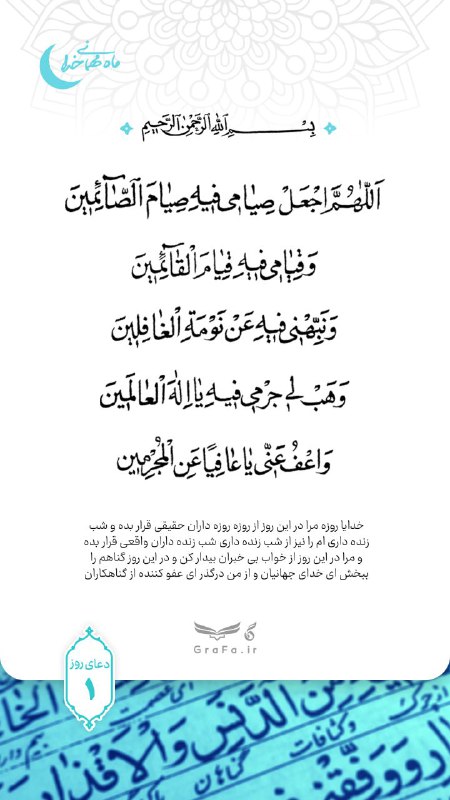 ماه مهمانی خدا
بِسْمِ اللَّهِ الرَّحْمَٰنِ الرَّحِيمِ
اَللّٰهُمَّ اجْعَلْ صِيٰامي فيهِ صِيٰامَ الصّٰآئِمِينَ
وَقِيٰامي فيهِ قِيٰامَ الْقٰآئِمِّينَ
وَنَبِّهْني فيهِ عَنْ نَوْمَةِ الْغٰافِلينَ
وَهَبْ لي جُرْمي فيهِ يٰا اِلٰهَ الْعٰالَمينَ
وَاعْفُ عَنّي يٰا عٰافِيًا عَنِ الْمُجْرِمينَ
خدایا روزه مرا در این روز از روزه روزه داران حقیقی قرار بده و شب
زنده داری ام را نیز از شب زنده داری شب زنده داران واقعی قرار بده
و مرا در این روز از خواب بی خبران بیدار کن و در این روز گناهم را
ببخش ای خدای جهانیان و از من درگذر ای عفو کننده از گناهکاران
GraFa.ir
دعای روز
۱
الدَّنَسِ وَالْاَقْذٰارِ
وکثافات